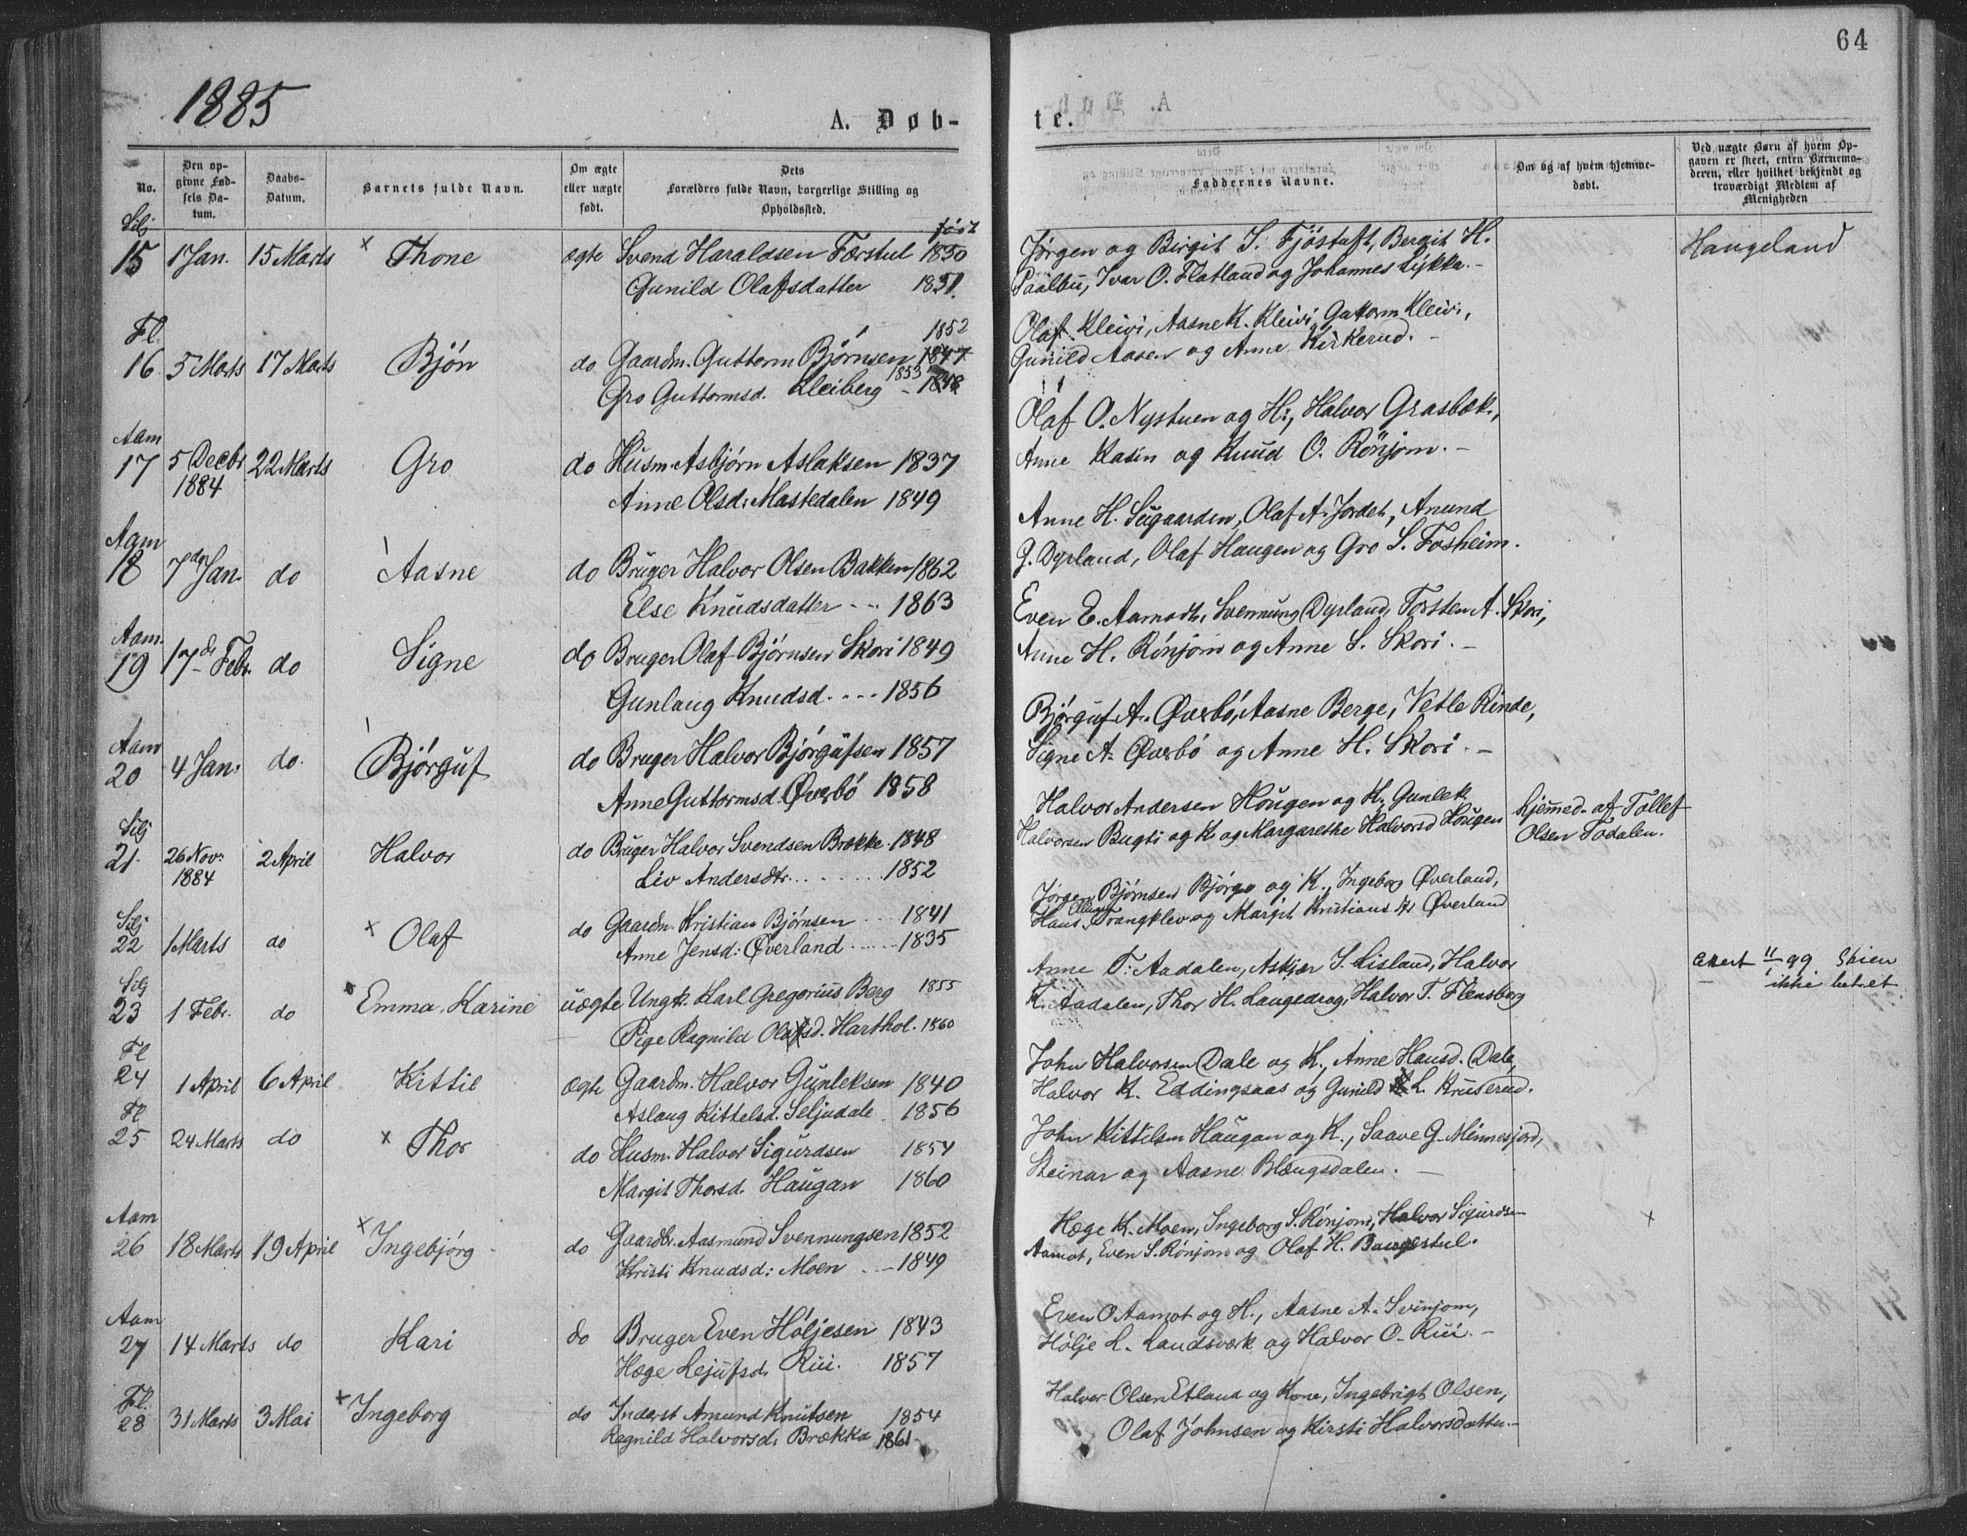 64
1885
A. Døb-
te.
No.
Den op-
givne Fød-
sels Da-
tum.
Daabs-
Datum.
Barnets fulde Navn.
Om ægte
eller uægte
født.
Dets
Forældres fulde Navn, borgerlige Stilling og
Opholdssted.
Faddernes Navne.
Om og af hvem hjemme-
døbt.
Ved uægte Børn af hvem Op-
gaven er skeet, enten Barnemo-
deren, eller hvilket bekjendt og
troværdigt Medlem af
Menigheden
født
Silj
15 1 Jan. 15 Marts × Thone ægte Svend Haraldsen Færstul 1850
Gunild Olafsdatter 1851.
Jørgen og Birgit S. Fjöstuft, Bergit H.
Paalbu, Ivar O. Flatland og Johannes Lykke.-
Haugeland
Fl. 1852
16 5 Marts 17 Marts Bjón do Gaardm. Guttorm Bjørnsen 1847
Gro Guttormsd. Kleiberg 1853 - 1848
Olaf Kleivi, Aasne K. Kleivi, Guttorm Kleivi,
Gunild Aasen og Anne Kirkerud.-
Aam
17 5 Decbr 22 Marts Gro do Husm. Asbjørn Aslaksen 1837
1884
Anne Olsd: Mastedalen 1849
Olaf O. Nystuen og H:, Halvor Grasbæk,
Anne Kasin og Knud O. Rønjom.-
Aam
18 7de Jan. do Aasne do Bruger Halvor Olsen Bakken 1862
Else Knudsdatter - - 1863
Anne H. Sugaarden, Olaf A. Jordet, Anund
G. Dyrland, Olaf Haugen og Gro S. Fosheim.
Aam.
19 17de Febr. do Signe do Bruger Olaf Bjørnsen Skori 1849
Gunlaug Knudsd. .... 1856
Even E. Aamodt, Svennung Dyrland, Torsten A. Skori,
Anne H. Rønjom og Anne S. Skori.-
Aam
20 4 Jan. do. Bjørguf do Bruger Halvor Bjørgufsen 1857
Anne Guttormsd. Øverbö 1858
Bjørguf A. Øverbö, Aasne Berge, Vetle Rinde,
Signe A. Øverbö og Anne H. Skori.-
Silj
21. 26 Nov: 2 April Halvor do Bruger Halvor Svendsen Brække 1848
1884
Liv Andersdtr........ 1852
Halvor Andersen Hougen og K. Gunlek
Halvorsen Bugti og K og Margarethe Halvorsd Hougen
hjemmed. af Tollef
Olsen Todalen.
Silj
22 1 Marts do × Olaf do Gaardm. Kristian Bjørnsen 1841
Anne Jensd: Øverland ..... 1835
Jørgen Bjørnsen Bjørge og K., Ingeborg Øverland,
Hans Trangklev og Margit Kristians dtr Øverland
Silj
23 1 Febr. do × Emma Karine uægte Ungk. Karl Gregorius Berg 1855
Pige Ragnild Olafsd. Harthol. 1860
Anne T. Aadalen, Askjær S. Lisland, Halvor
K. Aadalen, Thor H. Laugedrag, Halvor T. Flensborg
Attest 11/1 99 Skien
ikke betalt
Fl
24 1 April 6 April Kittil ægte Gaardm. Halvor Gunleksen 1840
Aslaug Kittelsd. Seljudale 1856
John Halvorsen Dale og K., Anne Hansd. Dale,
Halvor K. Eddingsaas og Gunild L. Kruserud.
Fl
25 24 Marts do × Thor do Husm. Halvor Sigurdsen 1854
Margit Thorsd. Haugan 1860
John Kittilsen Haugan og K., Saave G. Minnesjord,
Steinar og Aasne Blængsdalen.-
Aam
26 18 Marts 19 April × Ingebjørg do Gaardbr. Aasmund Svennungsen 1852
Kristi Knudsd: Moen - 1849
Hæge K. Moen, Ingeborg S. Rønjom, Halvor Sigurdsen
Aamot, Even S. Rønjom og Olaf H. Baugestul.
×
Aam
27 14 Marts do Kari do Bruger Even Høljesen 1843
Hæge Lejufsd. Rui. 1857
Even O Aamot og H., Aasne A. Svinjom,
Hølje L. Landsværk og Halvor O. Rui.-
Fl.
28 31 Marts 3 Mai × Ingeborg do Inderst Amund Knutsen 1854
Regnild Halvorsd. Brække 1861
Halvor Olsen Etland og Kone, Ingebrigt Olsen,
Olaf Johnsen og Kirsti Halvorsdatter.-